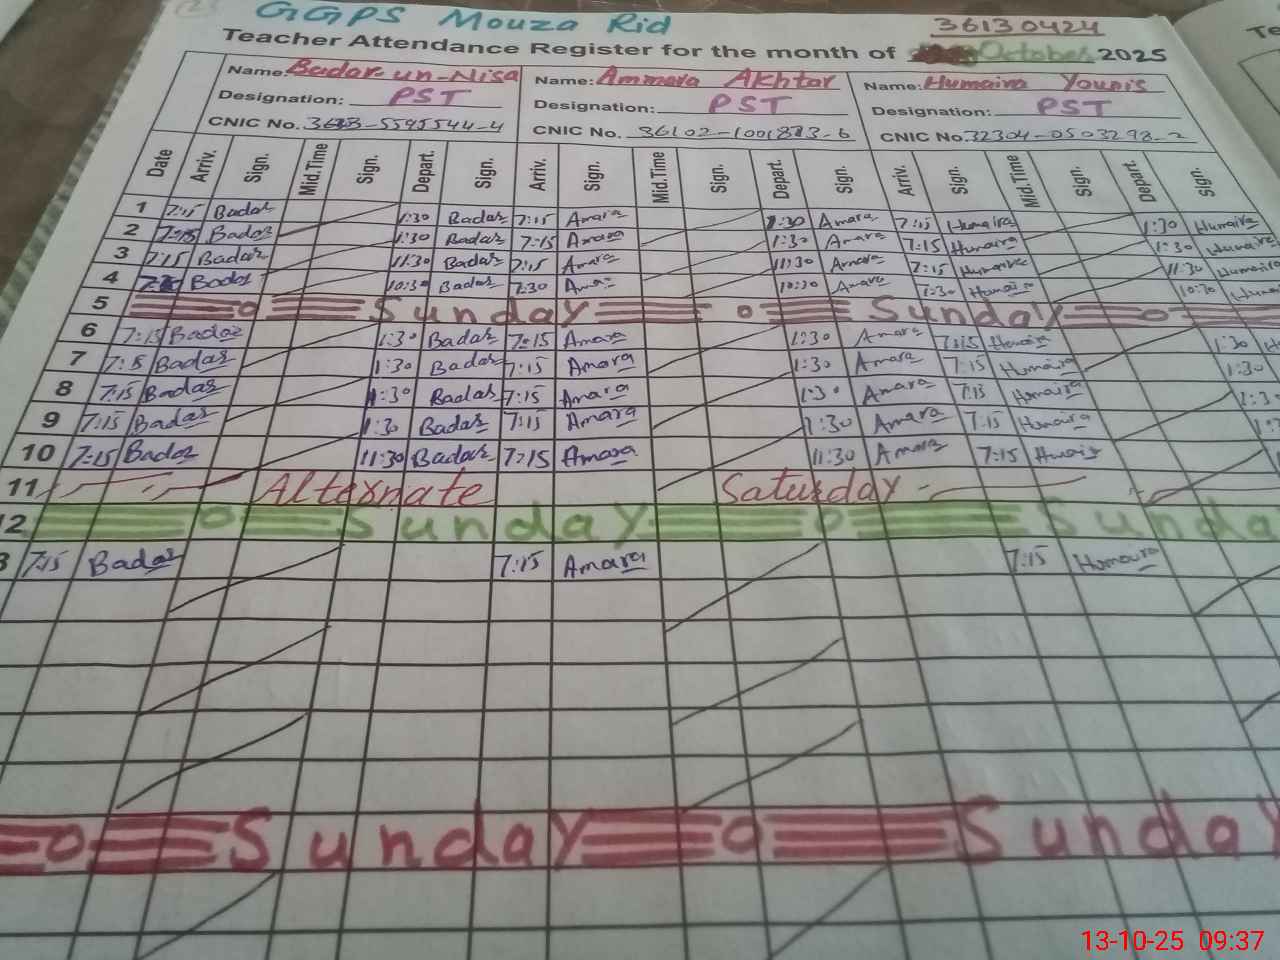 GGPS Mouza Rid 36130424
Teacher Attendance Register for the month of October 2025
Name: Badar-un-Nisa Name: Ammara Akhtar Name: Humaira Younis
Designation: PST Designation: PST Designation: PST
CNIC No. CNIC No. 36102-1001873-6 CNIC No. 32304-0503298-2
Date Arriv. Sign. Mid.Time Sign. Depart. Sign. Arriv. Sign. Mid.Time Sign. Depart. Sign. Arriv. Sign. Mid.Time Sign. Depart. Sign.
1 7:15 Badar 1:30 Badar 7:15 Amara 1:30 Amara 7:15 Humaira 1:30 Humaira
2 7:15 Badar 1:30 Badar 7:15 Amara 1:30 Amara 7:15 Humaira 1:30 Humaira
3 7:15 Badar 11:30 Badar 7:15 Amara 11:30 Amara 7:15 Humaira 11:30 Humaira
4 Badar 10:30 Badar 7:30 Amara 10:30 Amara 7:30 Humaira 10:30
5 Sunday Sunday
6 7:15 Badar 1:30 Badar 7:15 Amara 1:30 Amara 7:15 Humaira 1:30
7 7:15 Badar 1:30 Badar 7:15 Amara 1:30 Amara 7:15 Humaira 1:30
8 7:15 Badar 1:30 Badar 7:15 Amara 1:30 Amara 7:15 Humaira
9 7:15 Badar 1:30 Badar 7:15 Amara 1:30 Amara 7:15 Humaira
10 7:15 Badar 11:30 Badar 7:15 Amara 11:30 Amara 7:15 Humaira
11 Alternate Saturday
2 Sunday Sunda
3 7:15 Badar 7:15 Amara 7:15 Humaira
Sunday Sunday
13-10-25 09:37